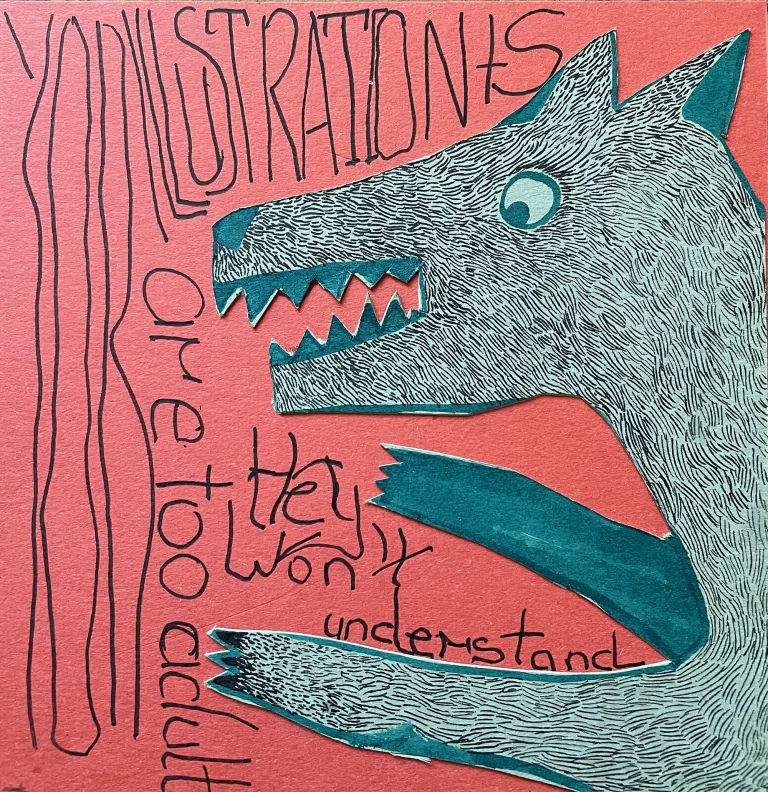 YOUR ILLUSTRATIONS
are too adult
Hey
Won't
understand